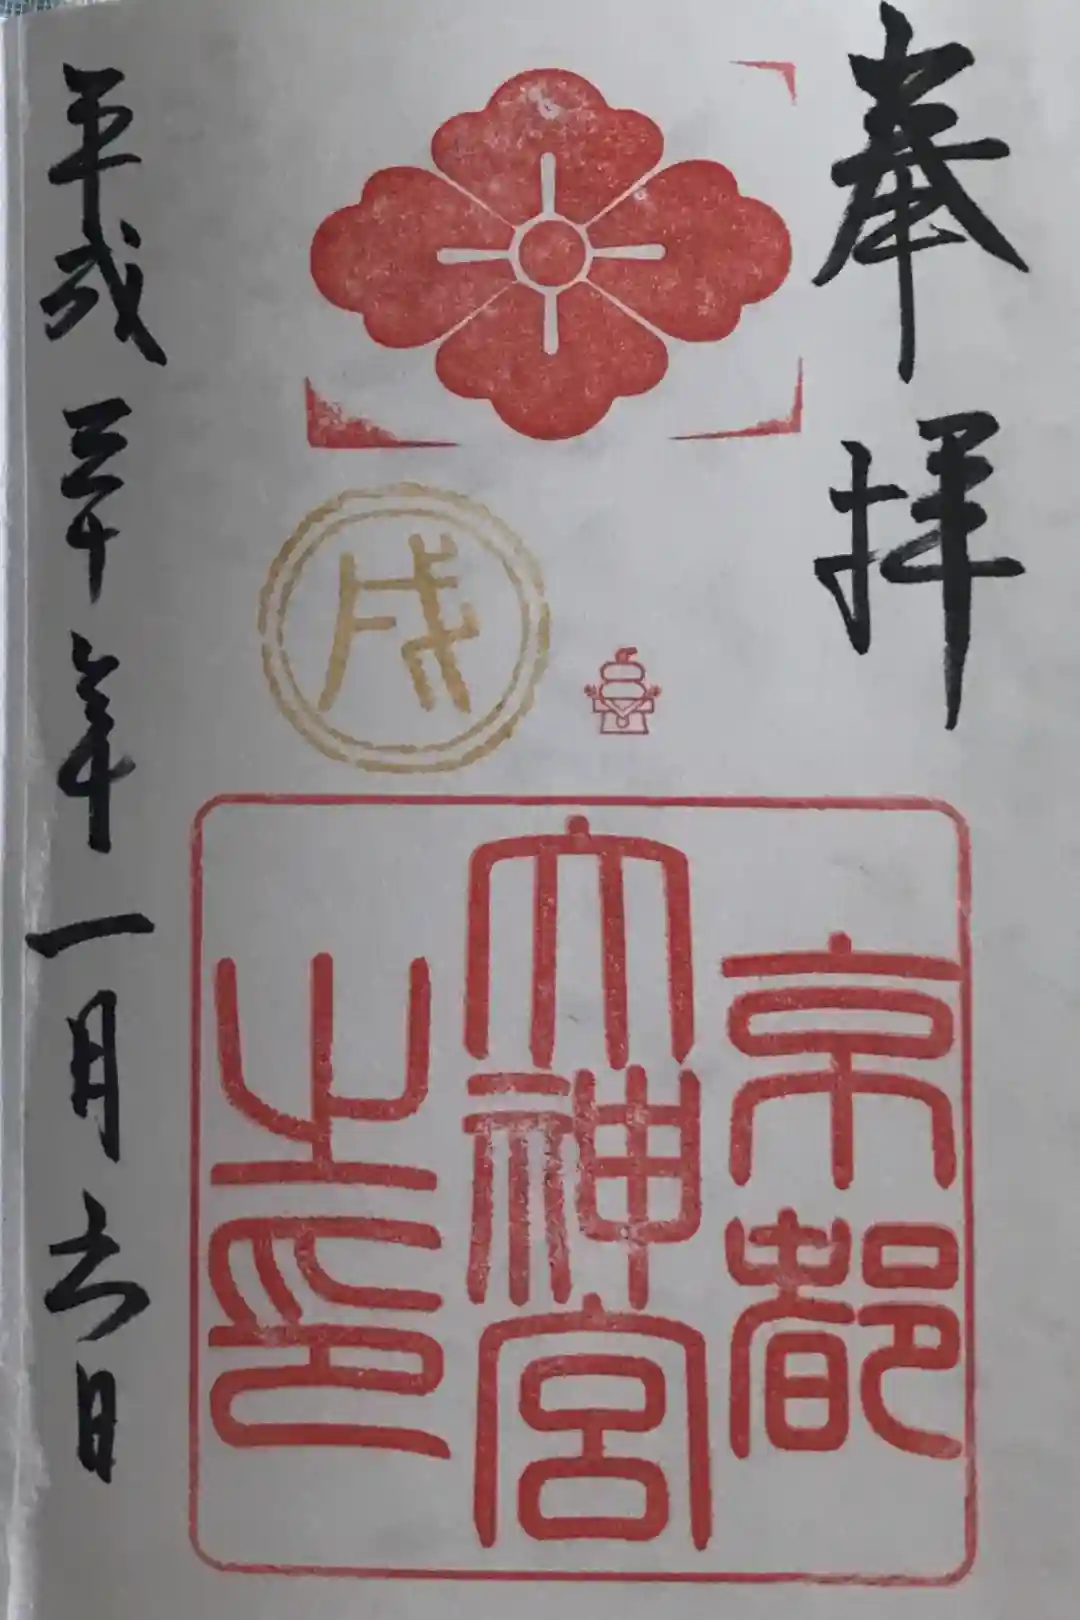 奉拝
戌
京都
大神宮
之印
平成三十年一月六日